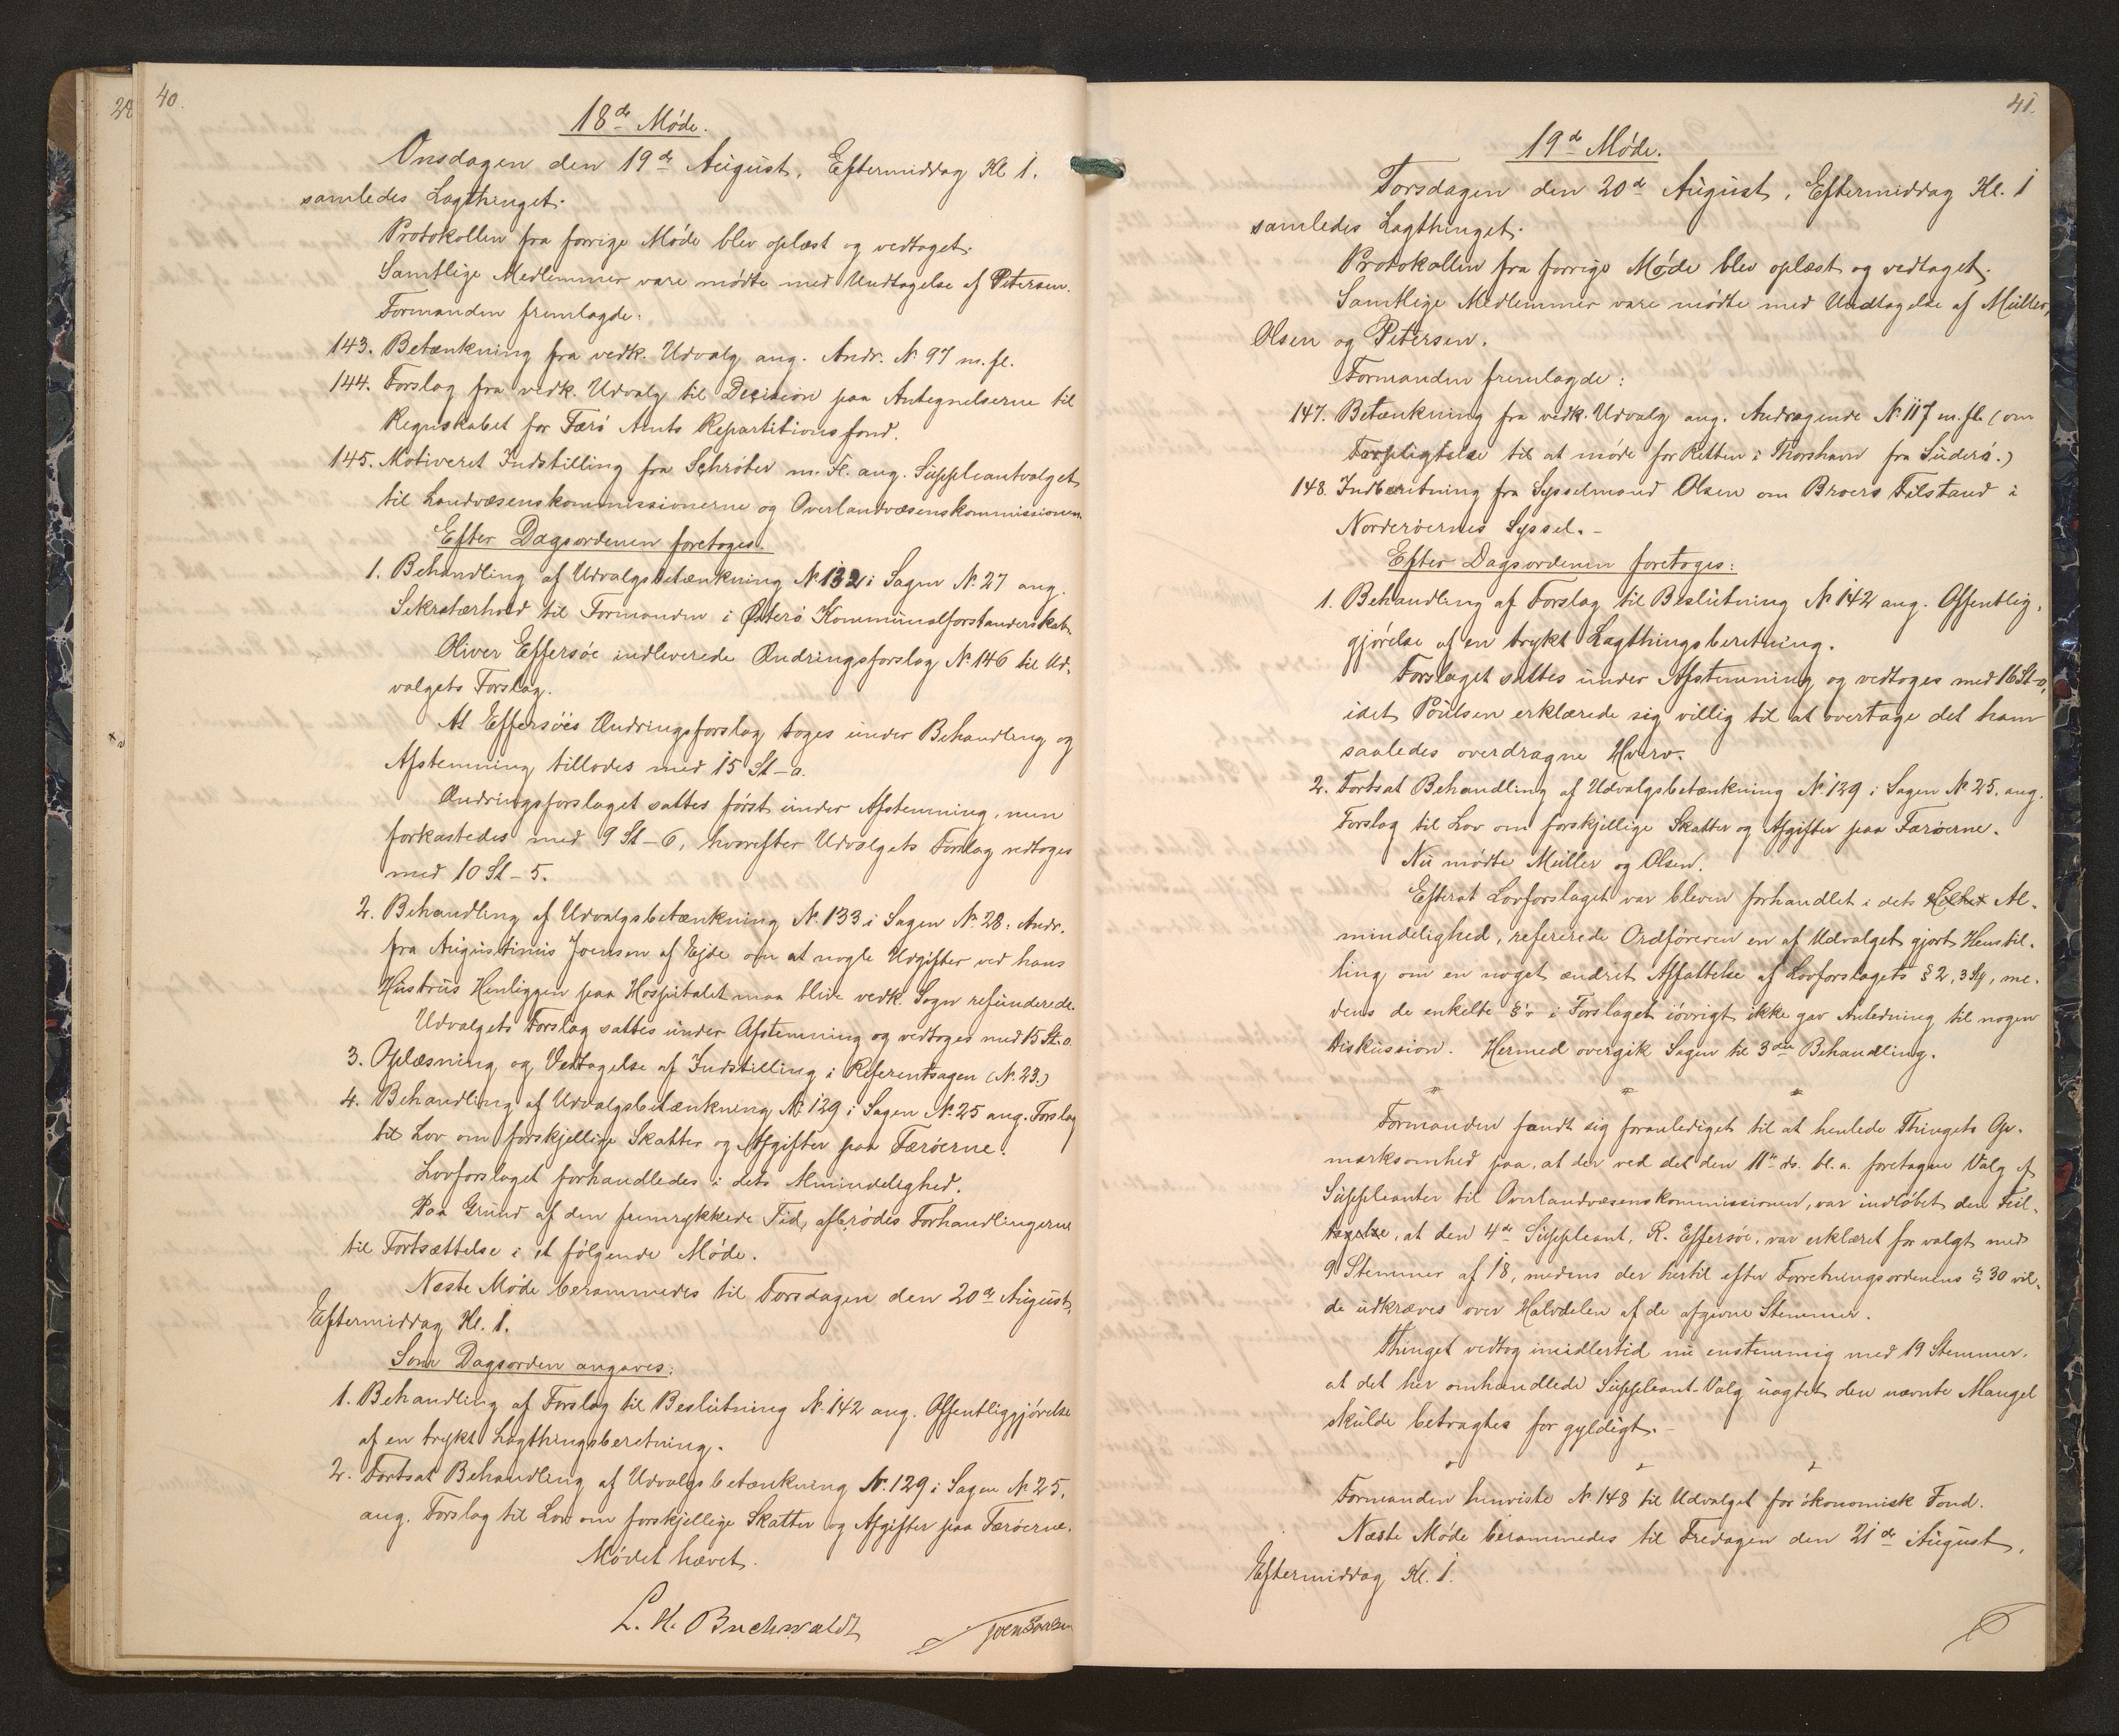 40.
18de Møde.
Onsdagen den 19de August, Eftermiddag Kl 1.
samledes Lagthinget.
Protokollen fra forrige Møde blev oplæst og vedtaget.
Samtlige Medlemmer vare mødte med Undtagelse af Petersen.
Formanden fremlagde:
143. Betænkning fra vedk. Udvalg ang. Andr. № 97 m. fl.
144. Forslag fra vedk. Udvalg til Decision paa Antegnelserne til
Regnskabet for Færø Amts Repartitionsfond.
145. Motiveret Indstilling fra Schrøter m. Fl. ang. Suppleantvalget
til Landvæsenskommissionerne og Overlandvæsenskommissionen.
Efter Dagsordenen foretoges:
1. Behandling af Udvalgsbetænkning № 132 i Sagen № 27 ang.
Sekretærhold til Formanden i Østerø Kommunalforstanderskab.
Oliver Effersøe indleverede Ændringsforslag № 146 til Ud-
valgets Forslag.
At Effersøes Ændringsforslag toges under Behandling og
Afstemning tillodes med 15 St-0.
Ændringsforslaget sattes først under Afstemning, men
forkastedes med 9 St-6, hvorefter Udvalgets Forslag vedtoges
med 10 St-5.
2. Behandling af Udvalgsbetænkning № 133 i Sagen № 28: Andr.
fra Augustinus Joensen af Ejde om at nogle Udgifter ved hans
Hustrus Henliggen paa Hospitalet maa blive vedk. Sogn refunderede.
Udvalgets Forslag sattes under Afstemning og vedtoges med 15 St.0.
3. Oplæsning og Vedtagelse af Indstilling i Referentsagen (№ 23.)
4. Behandling af Udvalgsbetænkning № 129 i Sagen № 25 ang. Forslag
til Lov om forskjellige Skatter og Afgifter paa Færøerne.
Lovforslaget forhandledes i dets Almindelighed.
Paa Grund af den fremrykkede Tid, afbrødes Forhandlingerne
til Fortsættelse i et følgende Møde.
Næste Møde berammedes til Torsdagen den 20de August,
Eftermiddag Kl. 1.
Som Dagsorden angaves:
1. Behandling af Forslag til Beslutning № 142 ang. Offentliggjørelse
af en trykt Lagthingsberetning.
2. Fortsat Behandling af Udvalgsbetænkning № 129 i Sagen № 25,
ang. Forslag til Lov om forskjellige Skatter og Afgifter paa Færøerne.
Mødet hævet.
L. H. Buchwaldt
41.
19de Møde.
Torsdagen den 20de August, Eftermiddag Kl. 1
samledes Lagthinget.
Protokollen fra forrige Møde blev oplæst og vedtaget.
Samtlige Medlemmer vare mødte med Undtagelse af Müller,
Olsen og Petersen.
Formanden fremlagde:
147. Betænkning fra vedk. Udvalg ang. Andragende № 117 m. fl. (om
Forpligtelse til at møde for Retten i Thorshavn fra Suderø.)
148. Indberetning fra Sysselmand Olsen om Broers Tilstand i
Norderøernes Syssel.-
Efter Dagsordenen foretoges:
1. Behandling af Forslag til Beslutning № 142 ang. Offentlig-
gjørelse af en trykt Lagthingsberetning.
Forslaget sattes under Afstemning og vedtoges med 16 St-0,
idet Poulsen erklærede sig villig til at overtage det ham
saaledes overdragne Hverv.
2. Fortsat Behandling af Udvalgsbetænkning № 129 i Sagen № 25. ang.
Forslag til Lov om forskjellige Skatter og Afgifter paa Færøerne.
Nu mødte Müller og Olsen.
Efterat Lovforslaget var bleven forhandlet i dets Al-
mindelighed, refererede Ordføreren en af Udvalget gjort Henstil-
ling om en noget ændret Affattelse af Lovforslagets § 2, 3 Stk, me-
dens de enkelte §'r i Forslaget iøvrigt ikke gav Anledning til nogen
Diskussion. Hermed overgik Sagen til 3die Behandling.
Formanden fandt sig foranlediget til at henlede Thingets Op-
mærksomhed paa, at der ved det den 11te ds. bl. a. foretagne Valg af
Suppleanter til Overlandvæsenskommissionen, var indløbet den Feil-
tagelse, at den 4de Suppleant, R. Effersøe, var erklæret for valgt med
9 Stemmer af 18, medens der hertil efter Forretningsordenens § 30 vil-
de udkræves over Halvdelen af de afgivne Stemmer.
Thinget vedtog imidlertid nu enstemmig med 19 Stemmer,
at det her omhandlede Suppleant-Valg uagtet den nævnte Mangel
skulde betragtes for gyldigt.-
Formanden henviste № 148 til Udvalget for økonomisk Fond.
Næste Møde berammedes til Fredagen den 21de August,
Eftermiddag Kl. 1.